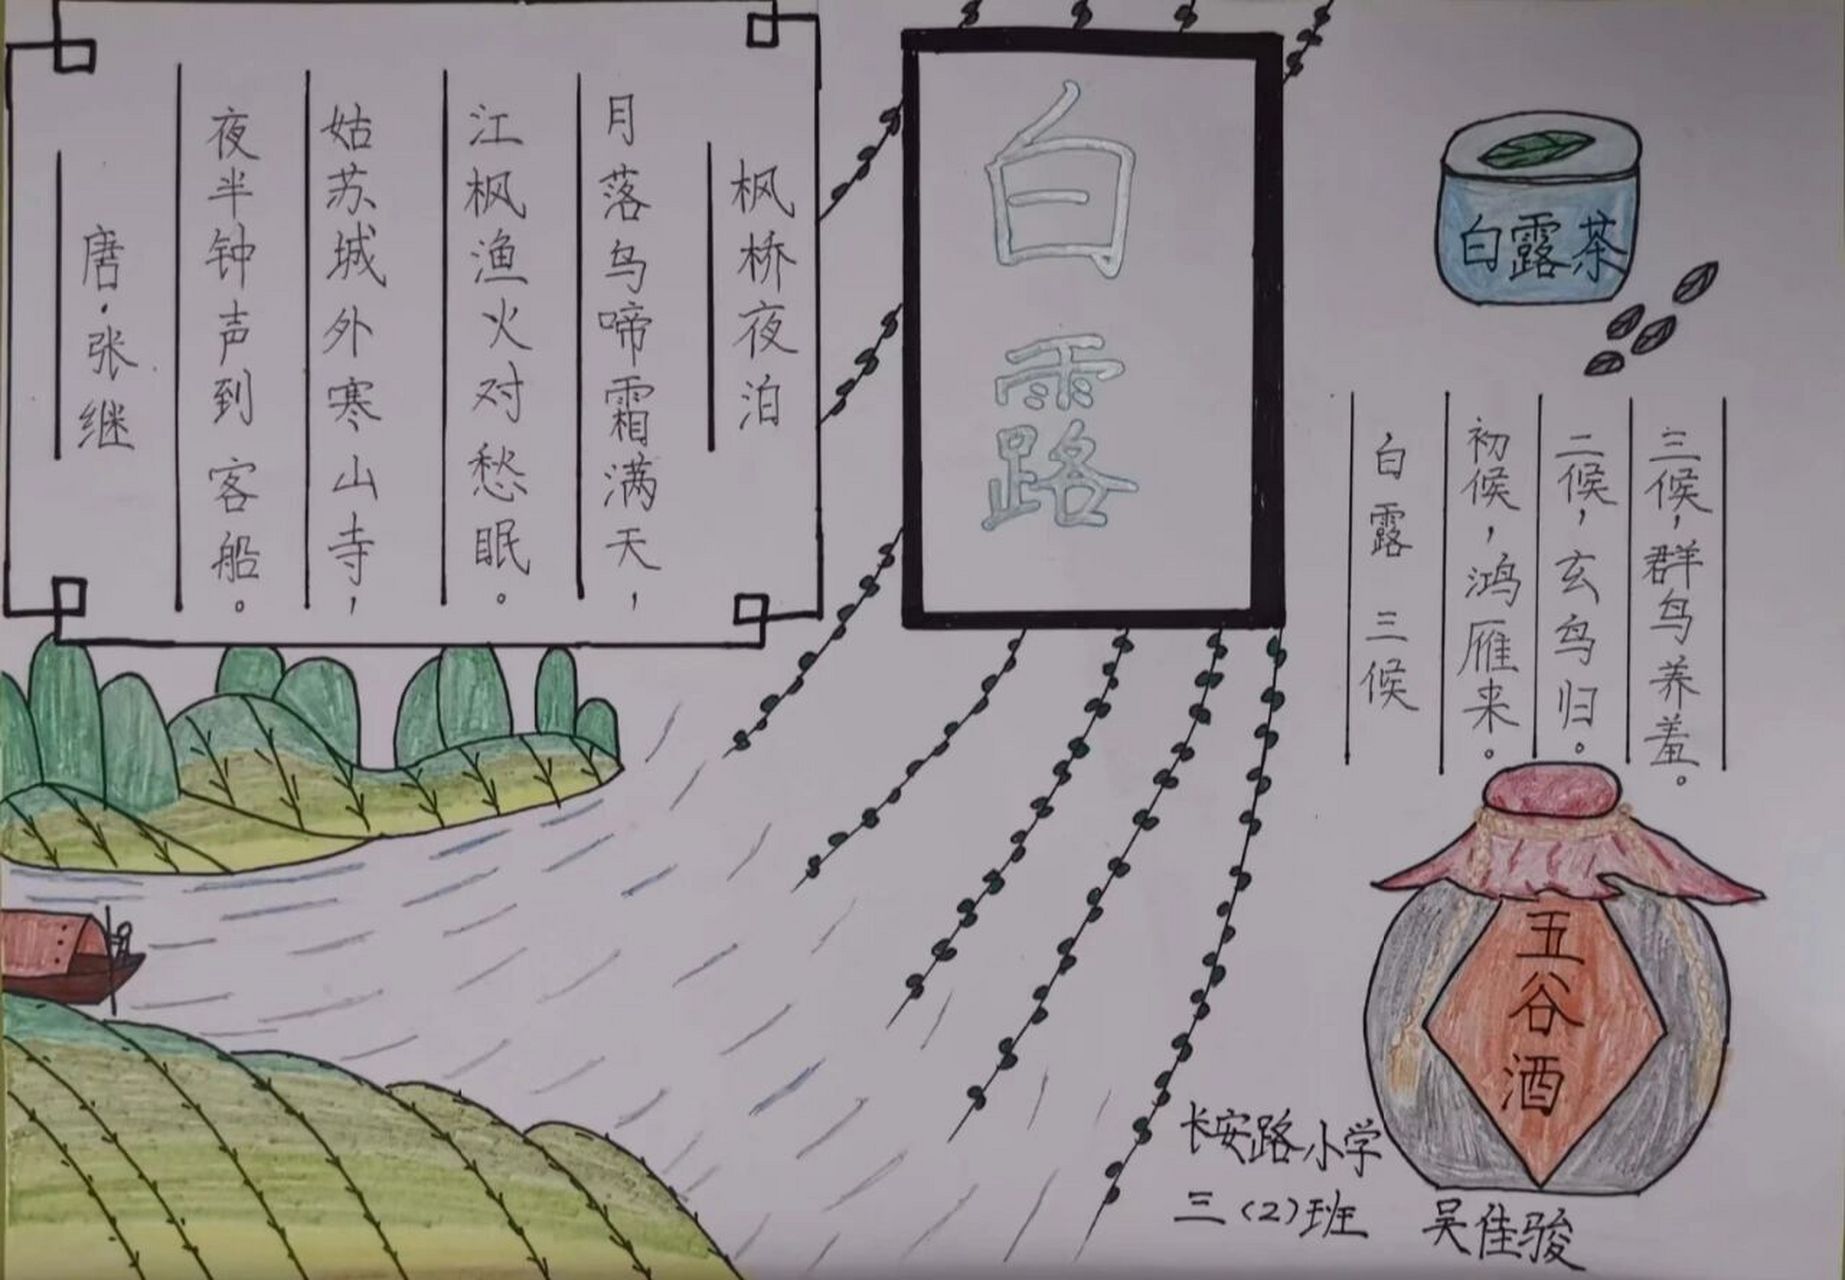 枫桥夜泊
月落鸟啼霜满天，
江枫渔火对愁眠。
姑苏城外寒山寺，
夜半钟声到客船。
唐·张继
白露
白露茶
白露三候
初候，鸿雁来。
二候，玄鸟归。
三候，群鸟养羞。
五谷酒
长安路小学
三（2）班 吴佳骏